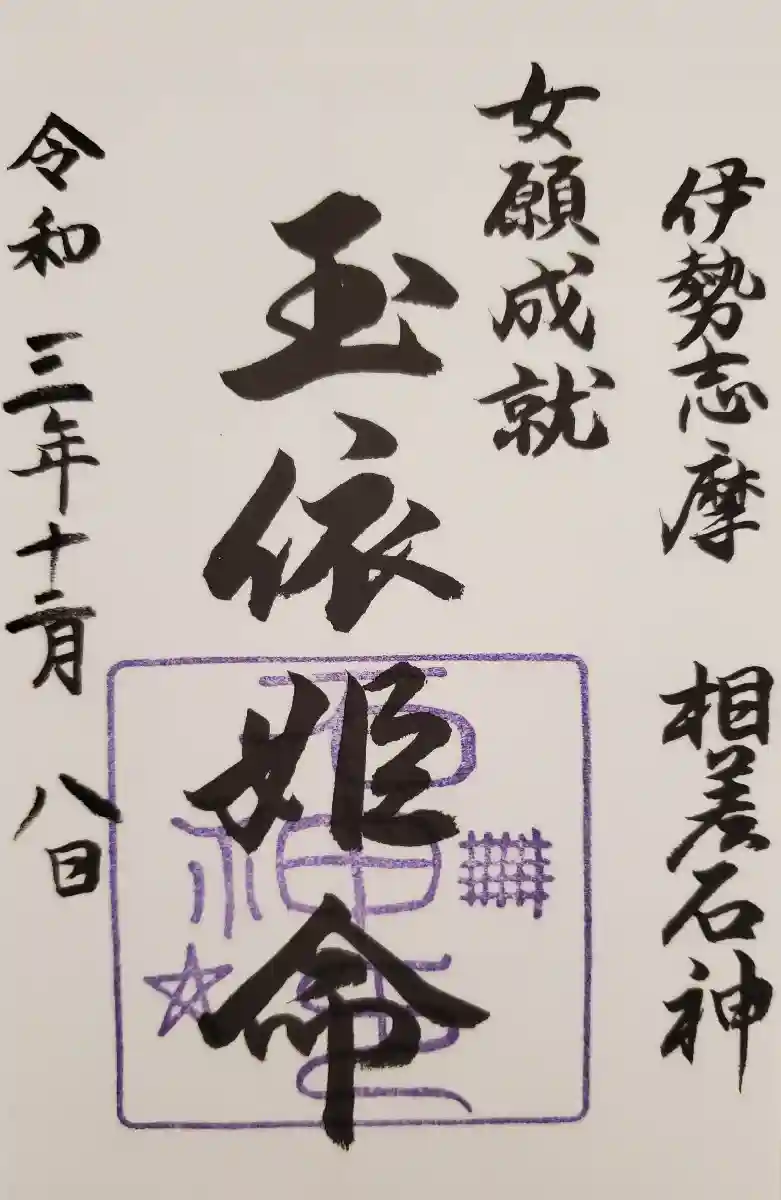 伊勢志摩 相差石神
女願成就
玉依姫命
令和 三年十二月 八日
石神